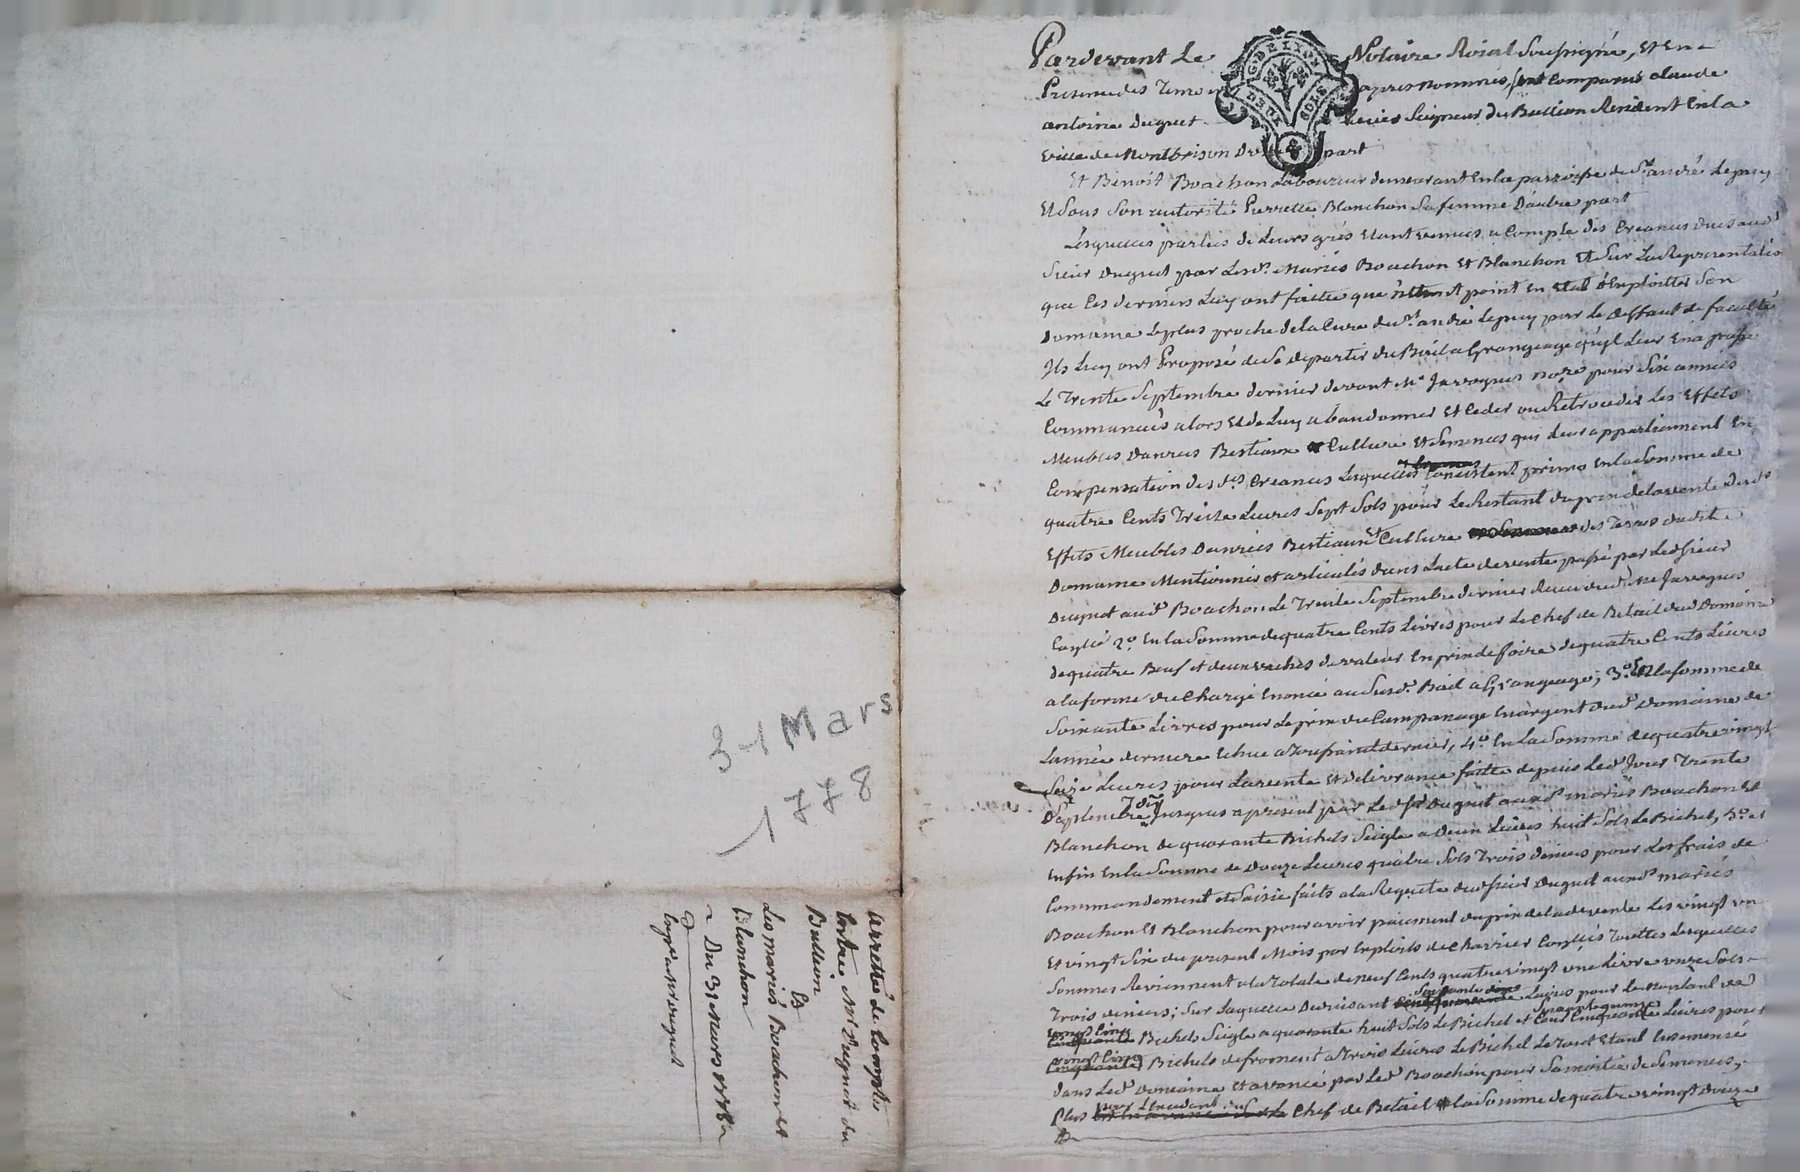 31 Mars
1778
arretté de Compte
Entre Mr Duguet du
Bullion
Et
Les mariés Boachon et
Blanchon
Du 31 mars 1778
Pardevant Le Notaire Roial Soussigné, Et En
Presence des Temoins apres nommés, sont Comparus claude
antoine Duguet Seigneur du Bullion Resident En la
ville de Montbrison D'une part
Et Benoist Boachon Laboureur demeurant En la parroisse de St. andré Lepuy
Et Sous Son autorité Pierrette Blanchon Sa femme D'autre part
Lesquelles parties de Leurs grés Etant venues a Compte des Creances dues aud.
Sieur Duguet par Lesd. Mariés Boachon Et Blanchon Et Sur La Representation
que Ces derniers Luy ont faitte que n'étant point En Etat d'Exploitter Son
Domaine Leplus proche de la Cure de St. andré Lepuy par le deffaut de faculté
Ils Luy ont Proposé de Se departir du Bail a Grangeage qu'il Leur En a passé
Le Trente Septembre dernier devant Me Jarrogues nore. pour Six années
Commancées alors Et de Luy abandonner Et Ceder ou Retroceder Les Effets
Meubles Danrées Bestiaux Culture Et Semences qui Leur appartiennent En
Compensation desdes. Creances Lesquelles Consistent primo En la Somme de
quatre Cents Treize Livres Sept Sols pour Le Restant du prix de la vente desds.
Effets Meubles Danrées Bestiaux Et Culture des Terres dudit
Domaine Mentionnés et articulés dans L'acte de vente passé par Led. Sieur
Duguet aud. Boachon Le Trente Septembre dernier Receu dud. Me Jarrogues
Conllé 2o. En la Somme de quatre Cents Livres pour Le Chef de Betail dud. Domaine
de quatre Beuf et deux vaches de valeur En prix de foire de quatre Cents Livres
a la forme du Chargé Enoncé au Susd. Bail a Grangeage; 3o. En la Somme de
Soixante Livres pour Le prix du Campanage En argent dud. Domaine de
L'année derniere Echue a Toussaint dernier, 4o. En La Somme de quatre vingt
Seize Livres pour La vente Et delivrance faitte depuis Led. Jour Trente
Septembre der. Jusques a present par Led. Sr. Duguet auxd. mariés Boachon Et
Blanchon de quarante Bichets Seigle a Deux Livres huit Sols Le Bichet, 5o. et
Enfin En la Somme de Douze Livres quatre Sols Trois deniers pour Les frais de
Commandement et Saisie faits a la Requete dud. Sieur Duguet auxd. mariés
Boachon Et Blanchon pour avoir paiement du prix de lad. vente Les vingt un
Et vingt Six du present Mois par Exploits de Charrier Conllés Touttes Lesquelles
Sommes Reviennent a la Totale de neuf Cents quatre vingt une Livre onze Sols
Trois deniers; Sur Laquelle Deduisant Soixante Livres pour Le montant de
vingt Cinq Bichets Seigle a quarante huit Sols Le Bichet et Livres pour
vingt Cinq Bichets de froment a Trois Livres Le Bichet Le Tout Etant Ensemencé
dans Led. Domaine Et avancé par Led. Boachon pour Sa moitié de Semences,
Plus Chef de Betail la Somme de quatre vingt Douze